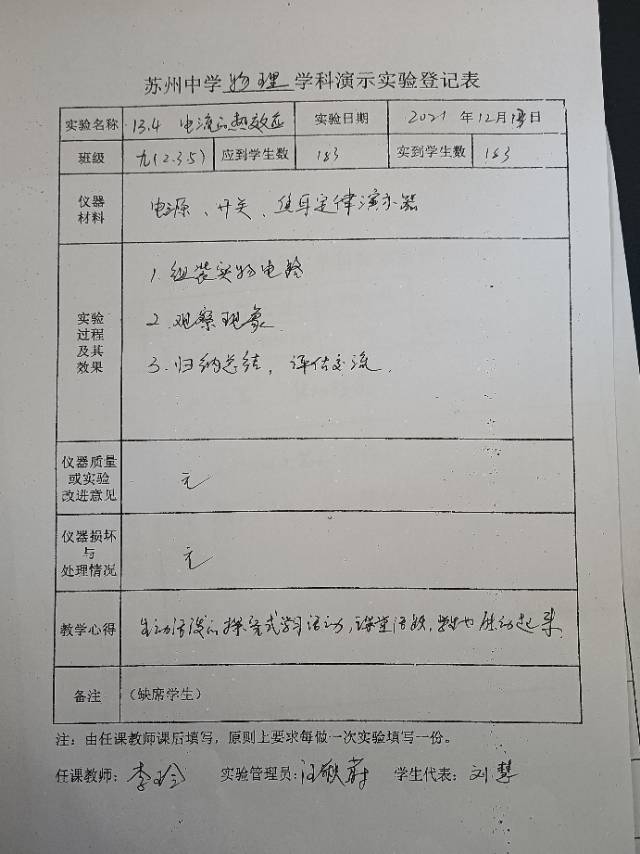 苏州中学物理学科演示实验登记表
实验名称 13.4 电流的热效应 实验日期 2021年12月 日
班级 九(2.3.5) 应到学生数 183 实到学生数 183
仪器
材料
电源、开关、焦耳定律演示器
实验
过程
及其
效果
1.组装实物电路
2.观察现象
3.归纳总结，评估交流.
仪器质量
或实验
改进意见
无
仪器损坏
与
处理情况
无
教学心得 生动活泼的探究式学习活动，课堂活跃，学生也 动起来
备注 (缺席学生)
注：由任课教师课后填写，原则上要求每做一次实验填写一份。
任课教师：李玲 实验管理员：汪 蔚 学生代表：刘慧